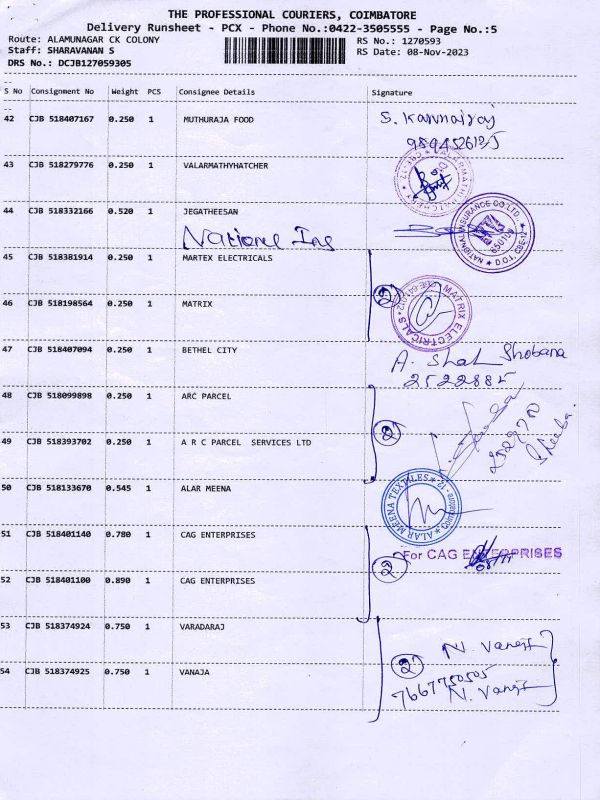 THE PROFESSIONAL COURIERS, COIMBATORE
Delivery Runsheet - PCX - Phone No.:0422-3505555 - Page No.:5
Route: ALAMUNAGAR CK COLONY RS No.: 1270593
Staff: SHARAVANAN S RS Date: 08-Nov-2023
DRS No.: DCJB127059305
S No Consignment No Weight PCS Consignee Details Signature
42 CJB 518407167 0.250 1 MUTHURAJA FOOD S. Kannairaj
43 CJB 518279776 0.250 1 VALARMATHYHATCHER
44 CJB 518332166 0.520 1 JEGATHEESAN
National Ins
NATIONAL INSURANCE CO LTD
45 CJB 518381914 0.250 1 MARTEX ELECTRICALS
2
46 CJB 518198564 0.250 1 MATRIX
MATRIX ELECTRICALS
47 CJB 518407094 0.250 1 BETHEL CITY
A. Shobana
2522885
48 CJB 518099898 0.250 1 ARC PARCEL
2
49 CJB 518393702 0.250 1 A R C PARCEL SERVICES LTD
Sheeba
50 CJB 518133670 0.545 1 ALAR MEENA
ALAR MEENA TEXTILES * Coimbatore - 12 *
51 CJB 518401140 0.780 1 CAG ENTERPRISES
For CAG ENTERPRISES
2
52 CJB 518401100 0.890 1 CAG ENTERPRISES
53 CJB 518374924 0.750 1 VARADARAJ
N. Vanaja
2
54 CJB 518374925 0.750 1 VANAJA
7667750505
N. Vanaja